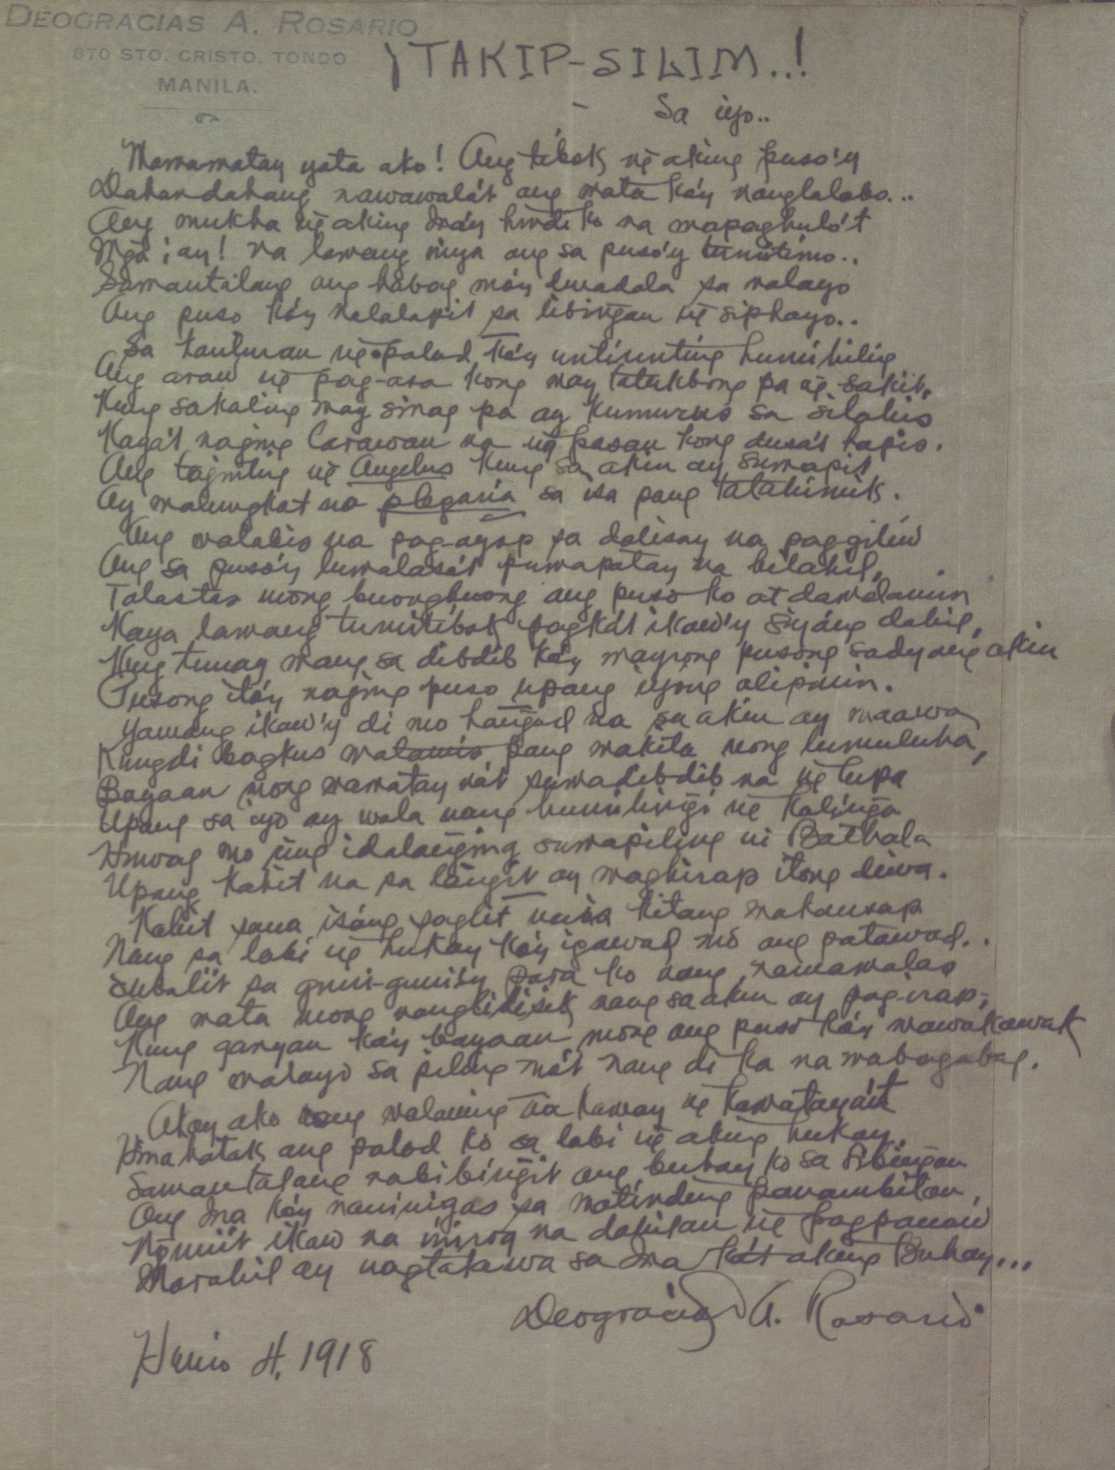 DEOGRACIAS A. ROSARIO
870 STO. CRISTO, TONDO
MANILA.
¡TAKIP-SILIM..!
Sa iyo..
Mamamatay yata ako! Ang tibok ng aking puso'y
Dahandahang nawawala't ang mata ko'y nanglalabo...
Ang mukha ng aking ina'y hindi ko na mapaghulo't
Mga ¡ay! na lamang niya ang sa puso'y tumitimo..
Samantalang ang habag mo'y lumalala sa malayo
Ang puso ko'y nalalapit sa libingan ng siphayo..
Sa kanluran ng palad ko'y untiunting humihilig
Ang araw ng pag-asa kong may talukbong pa ng sakit,
Kung sakaling may sinag pa ay kumurus sa silahis
Kaya't naging larawan na ng pasan kong dusa't hapis.
Ang taginting ng Angelus kung sa akin ay sumapit
Ay malungkot na plegaria sa isa pang tatahimik.
Ang malabis na pag-ayop sa dalisay na paggiliw
Ang sa puso'y lumalasa't pumapatay na hilahil,
Talastas mong buongbuong ang puso ko at damdamin
Kaya lamang tumitibok pagka't ikaw'y siyang dahil,
Kung tunay mang sa dibdib ko'y mayrong pusong sadyang akin
Pusong ito'y naging puso upang iyong alipinin.
Yamang ikaw'y di mo hangad na sa akin ay maawa
Kungdi bagkus matamis pang makita mong lumuluha,
Bayaan mong mamatay na't sumadibdib na ng lupa
Upang sa iyo ay wala nang humihingi ng kalinga
Huwag mo nang idalanging sumapiling ni Bathala
Upang kahit na sa langit ay maghirap itong diwa.
Kahit sana isang saglit nais kitang makausap
Nang sa labi ng hukay ko'y igawad mo ang patawad..
Subalit sa guni-guni'y para ko nang namamalas
Ang mata mong nanglilisik nang sa akin ay pag-irap;
Kung ganyan ka'y bayaan mong ang puso ko'y mawakawak
Nang malayo sa piling mo't nang di ka na mabagabag.
Akay ako nang malaming na kamay ng kamataya't
Hinahatak ang palad ko sa labi ng aking hukay,
Samantalang nabibingit ang buhay ko sa libingan
Ang ina ko'y naninigas sa matinding panambitan,
Nguni't ikaw na na dahilan ng pagpanaw
Marahil ay nagtatawa sa ina ko't aking buhay...
Deogracias A. Rosario
Hunio 4, 1918